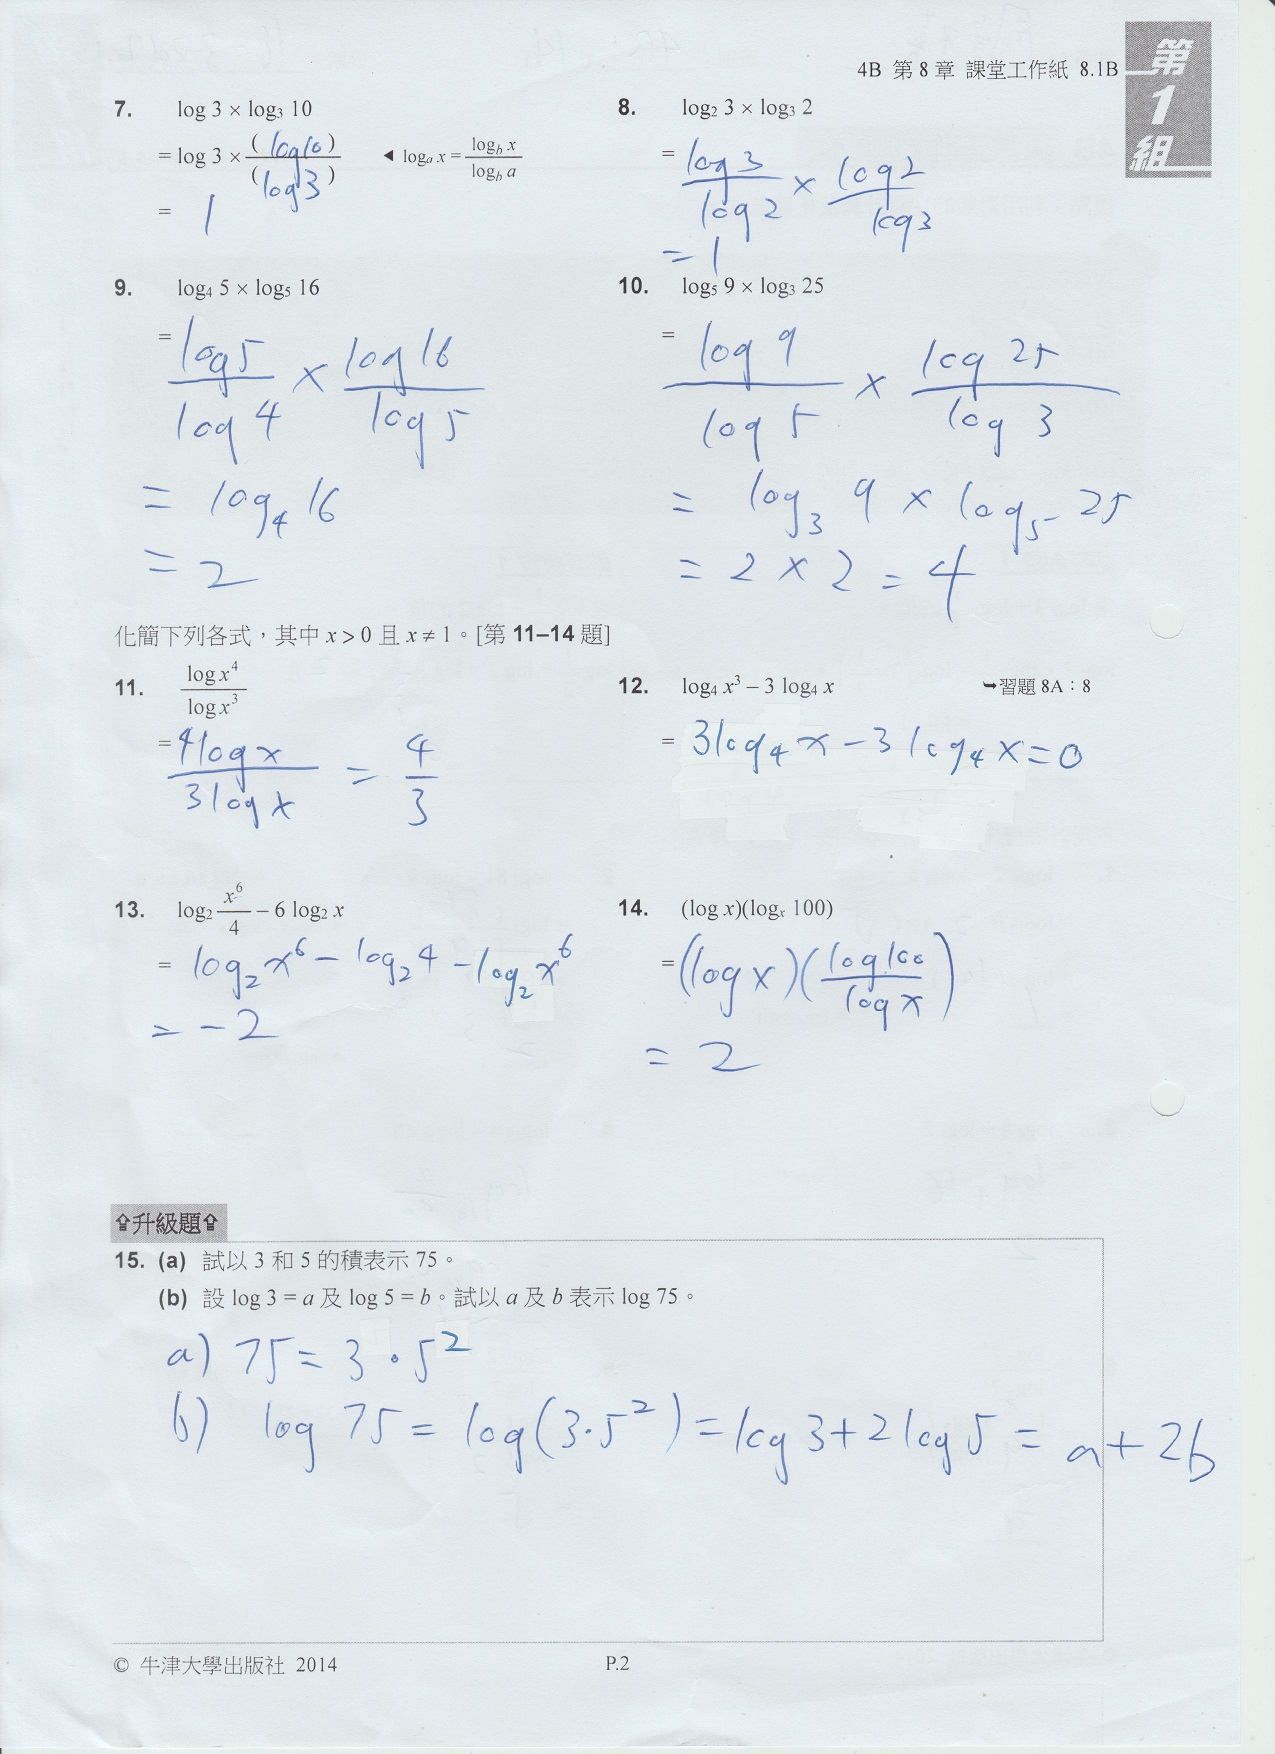 4B 第 8 章 課堂工作紙 8.1B
第1組
7. log 3 × log₃ 10
= log 3 × (log10)/(log3) ◀ logₐ x = log_b x / log_b a
= 1
8. log₂ 3 × log₃ 2
= log 3/log 2 × log 2/log 3
= 1
9. log₄ 5 × log₅ 16
= log 5/log 4 × log 16/log 5
= log₄ 16
= 2
10. log₅ 9 × log₃ 25
= log 9/log 5 × log 25/log 3
= log₃ 9 × log₅ 25
= 2 × 2 = 4
化簡下列各式，其中 x > 0 且 x ≠ 1。[第 11–14 題]
11. log x⁴/log x³
= 4 log x/3 log x = 4/3
12. log₄ x³ – 3 log₄ x ➥習題 8A：8
= 3 log₄ x – 3 log₄ x = 0
13. log₂ x⁶/4 – 6 log₂ x
= log₂ x⁶ – log₂ 4 – log₂ x⁶
= – 2
14. (log x)(logₓ 100)
= (log x)(log 100/log x)
= 2
⇧升級題⇧
15. (a) 試以 3 和 5 的積表示 75。
(b) 設 log 3 = a 及 log 5 = b。試以 a 及 b 表示 log 75。
a) 75 = 3 · 5²
b) log 75 = log(3·5²) = log 3 + 2 log 5 = a + 2b
© 牛津大學出版社 2014 P.2